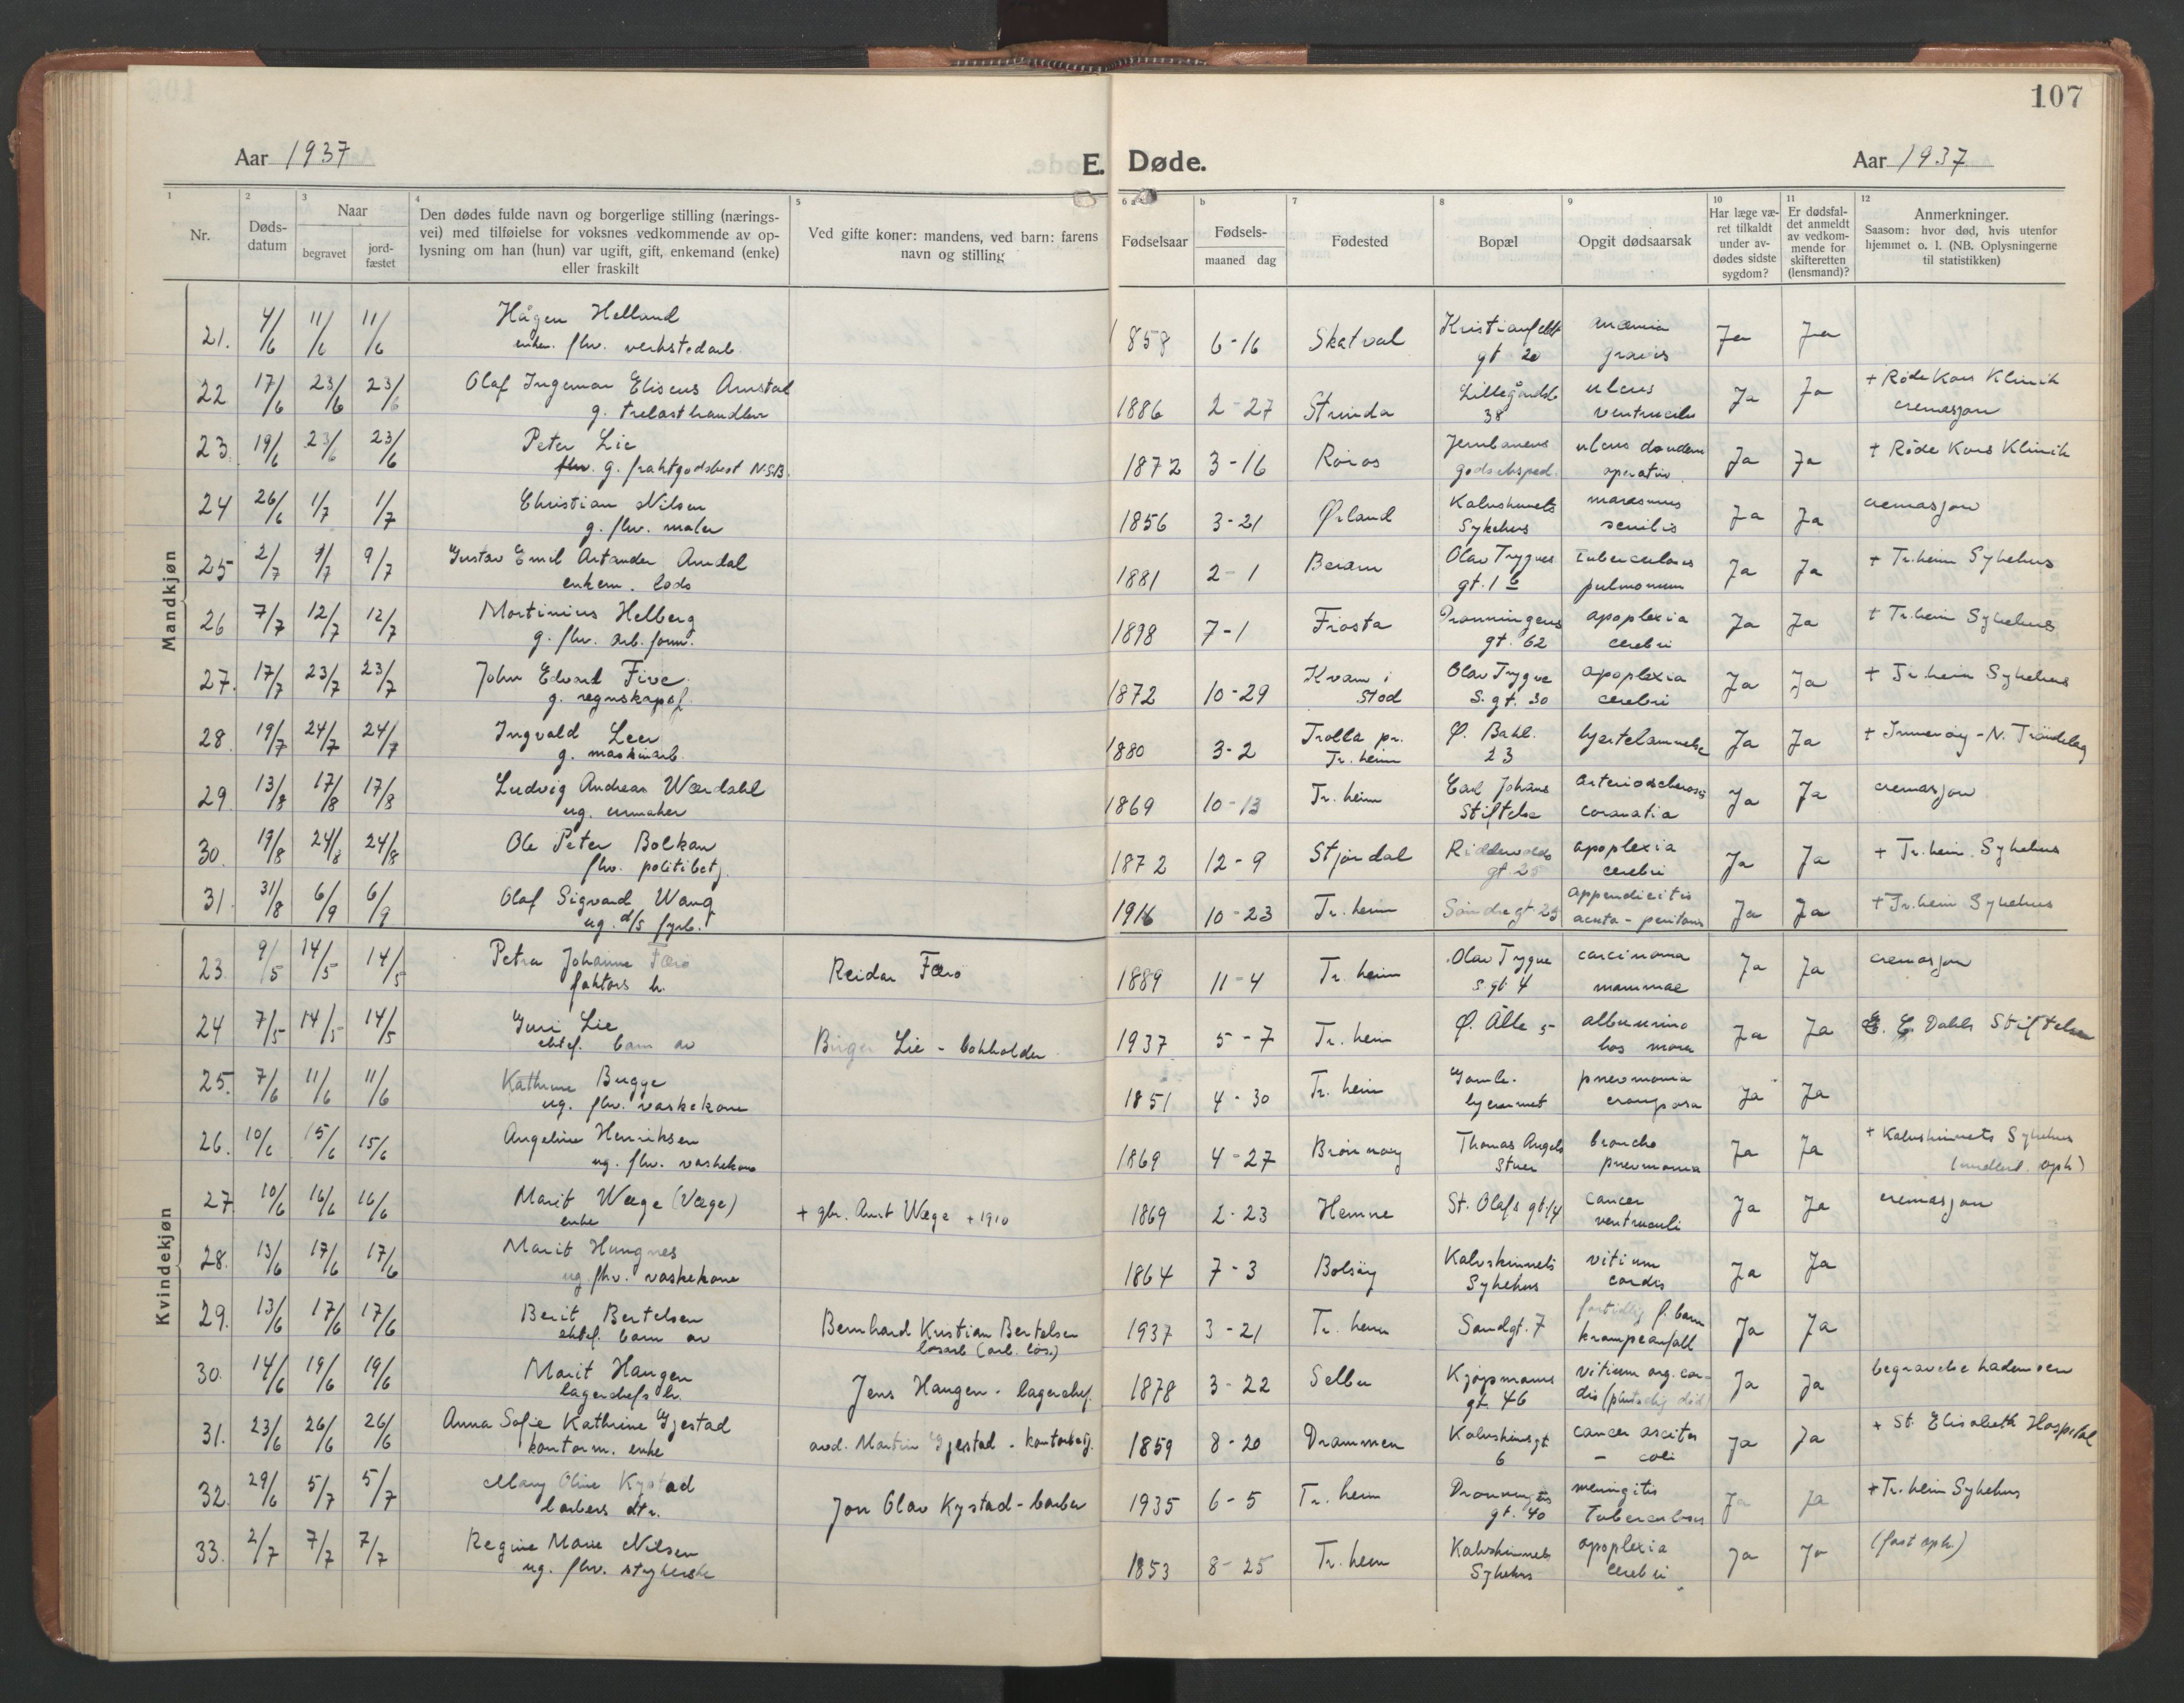 107
Aar 1937
E. Døde.
Aar 1937
1 2 3 4 5 6 a b 7 8 9 10 11 12
Nr.
Døds-
datum
Naar
begravet
jord-
fæstet
Den dødes fulde navn og borgerlige stilling (nærings-
vei) med tilføielse for voksnes vedkommende av op-
lysning om han (hun) var ugift, gift, enkemand (enke)
eller fraskilt
Ved gifte koner: mandens, ved barn: farens
navn og stilling
Fødselsaar
Fødsels-
maaned dag
Fødested
Bopæl
Opgit dødsaarsak
Har læge væ-
ret tilkaldt
under av-
dødes sidste
sygdom?
Er dødsfal-
det anmeldt
av vedkom-
mende for
skifteretten
(lensmand)?
Anmerkninger.
Saasom: hvor død, hvis utenfor
hjemmet o. l. (NB. Oplysningerne
til statistikken)
Mandkjøn
21. 4/6 11/6 11/6 Hågen Helland 1858 6-16 Skatval Kristianfeldt anæmia Ja Ja
enkem. fhv. verkstedarb. gt 20 gravis
22 17/6 23/6 23/6 Olaf Ingemar Eliseus Arnstad 1886 2-27 Strinda ulcus Ja Ja + Røde Kors Klinik
g. trelasthandler 38 ventriculi cremasjon
23. 19/6 23/6 23/6 Peter Lie 1872 3-16 Røros Jernbanens ulcus Ja Ja + Røde Kors Klinik
fhv. g. fraktgodsbest N.S.B. godseksped. operativ
24 26/6 1/7 1/7 Christian Nilsen 1856 3-21 Ørland Kalvskinnets marasmus Ja Ja cremasjon
g. fhv. maler Sykehus senilis
25 2/7 9/7 9/7 Gustav Emil Artander Arndal 1881 2-1 Beiarn Olav Trygves tuberculosis Ja Ja + Tr.heim Sykehus
enkem. lods gt. 1 b pulmonum
26 7/7 12/7 12/7 Martinius Helberg 1898 7-1 Frosta Dronningens apoplexia Ja Ja + Tr.heim Sykehus
g. fhv. arb.form. gt. 62 cerebri
27. 17/7 23/7 23/7 John Edvard Five 1872 10-29 Kvam i Olav Trygve apoplexia Ja Ja + Tr.heim Sykehus
g. regnskapsf. Stod s. gt. 30 cerebri
28. 19/7 24/7 24/7 Ingvald Leer 1880 3-2 Trolla pr. Ø. Bakl. hjertelammelse Ja Ja + Inderøy - N. Trøndelag
g. maskinarb. Tr. heim 23
29. 13/8 17/8 17/8 Ludvig Andreas Wærdahl 1869 10-13 Tr. heim Carl Johans arteriosclerosis Ja Ja cremasjon
ug. urmaker Stiftelse coronaria
30. 19/8 24/8 24/8 Ole Peter Bolkan 1872 12-9 Stjørdal Riddervolds apoplexia Ja Ja + Tr.heim Sykehus
fhv. politibetj. gt. 25 cerebri
31. 31/8 6/9 6/9 Olaf Sigvard Wang 1916 10-23 Tr. heim Søndregt 23 appendicitis Ja Ja + Tr.heim Sykehus
ug. d/s fyrb. acuta - peritonit
Kvindekjøn
23. 9/5 14/5 14/5 Petra Johanne Færø Reidar Færø 1889 11-4 Tr. heim Olav Trygve carcinoma Ja Ja cremasjon
faktors h. s. gt. 4 mammae
24 7/5 14/5 14/5 Guri Lie Birger Lie - bokholder 1937 5-7 Tr. heim Ø. Alle 5 Ja Ja E. C. Dahls Stiftelse
ektef. barn av
25. 7/6 11/6 11/6 Kathrine Bugge 1851 4-30 Tr. heim Gamle- pneumonia Ja Ja
ug. fhv. vaskekone hjemmet crouposa
26. 10/6 15/6 15/6 Angeline Henriksen 1869 4-27 Brønnøy Thomas Angels broncho Ja Ja + Kalvskinnets Sykehus
ug. fhv. vaskekone Stuer pneumonia (midlert. oph)
27. 10/6 16/6 16/6 Marit Wæge (Væge) + gbr. Arnt Wæge + 1910 1869 2-23 Hemne St. Olafs gt. 14 cancer Ja Ja cremasjon
enke ventriculi
28. 13/6 17/6 17/6 Marit Hungnes 1864 7-3 Bolsøy Kalvskinnets vitium Ja Ja
ug. fhv. vaskekone Sykehus cordis
29. 13/6 17/6 17/6 Berit Bertelsen Bernhard Kristian Bertelsen 1937 3-21 Tr. heim Sandgt. 7 fortidlig f. barn Ja Ja
ektef. barn av løsarb (arb. løs.) krampeanfall
30. 14/6 19/6 19/6 Marit Haugen Jens Haugen - lagerchef. 1878 3-22 Selbu Kjøpmanns vitium org. cor- Ja Ja begravelse Lademoen
lagerchefs h. gt. 46 dis (plutselig død)
31. 23/6 26/6 26/6 Anna Sofie Kathrine Gjestad avd. Martin Gjestad - kontorbetj. 1859 8-20 Drammen Kalvskinsgt. cancer ascites Ja Ja + St. Elisabeth Hospital
kontorm. enke 6 - coli
32. 29/6 5/7 5/7 Mary Oline Kystad Jon Olav Kystad - barber 1935 6-5 Tr. heim Dronningens meningitis Ja Ja + Tr. heim Sykehus
barbers dtr. gt. 40 tuberculosa
33. 2/7 7/7 7/7 Regine Marie Nilsen 1853 8-25 Tr. heim Kalvskinnets apoplexia Ja Ja (fast oph.)
ug. fhv. Sykehus cerebri